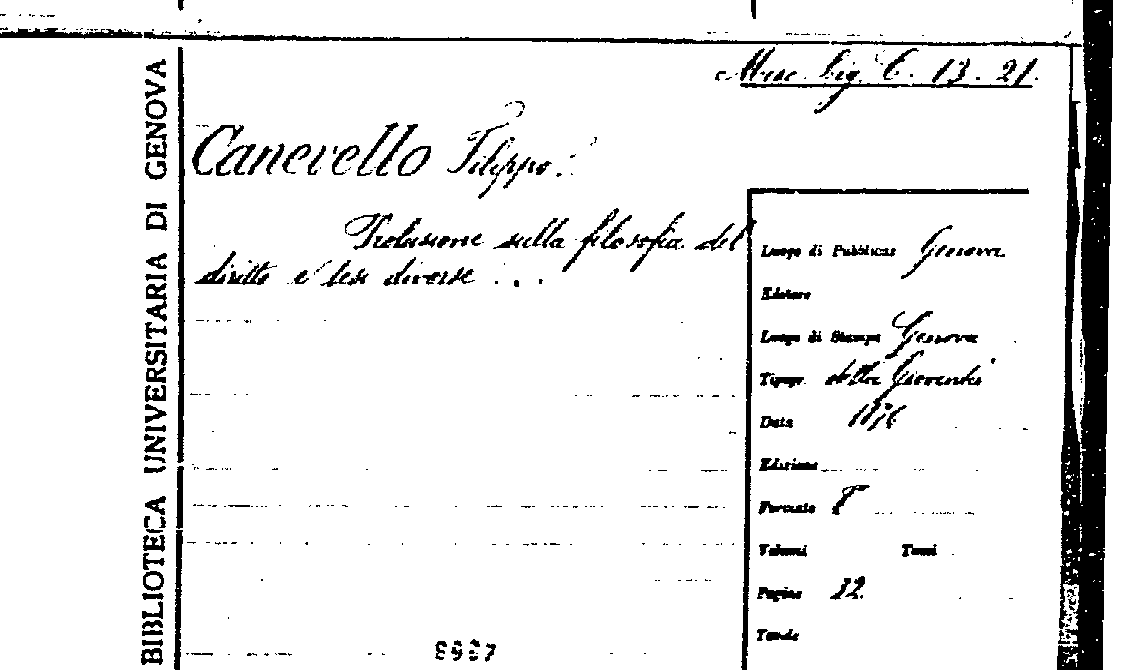 BIBLIOTECA UNIVERSITARIA DI GENOVA
Misc. Lig. C. 13. 21.
Canevello Filippo.
Prolusione sulla filosofia del
diritto e tesi diverse ...
Luogo di Pubblicaz. Genova
Editore
Luogo di Stampa Genova
Tipogr. della Gioventù
Data 1876
Edizione
Formato 8°
Volumi Tomi
Pagine 12.
Tavole